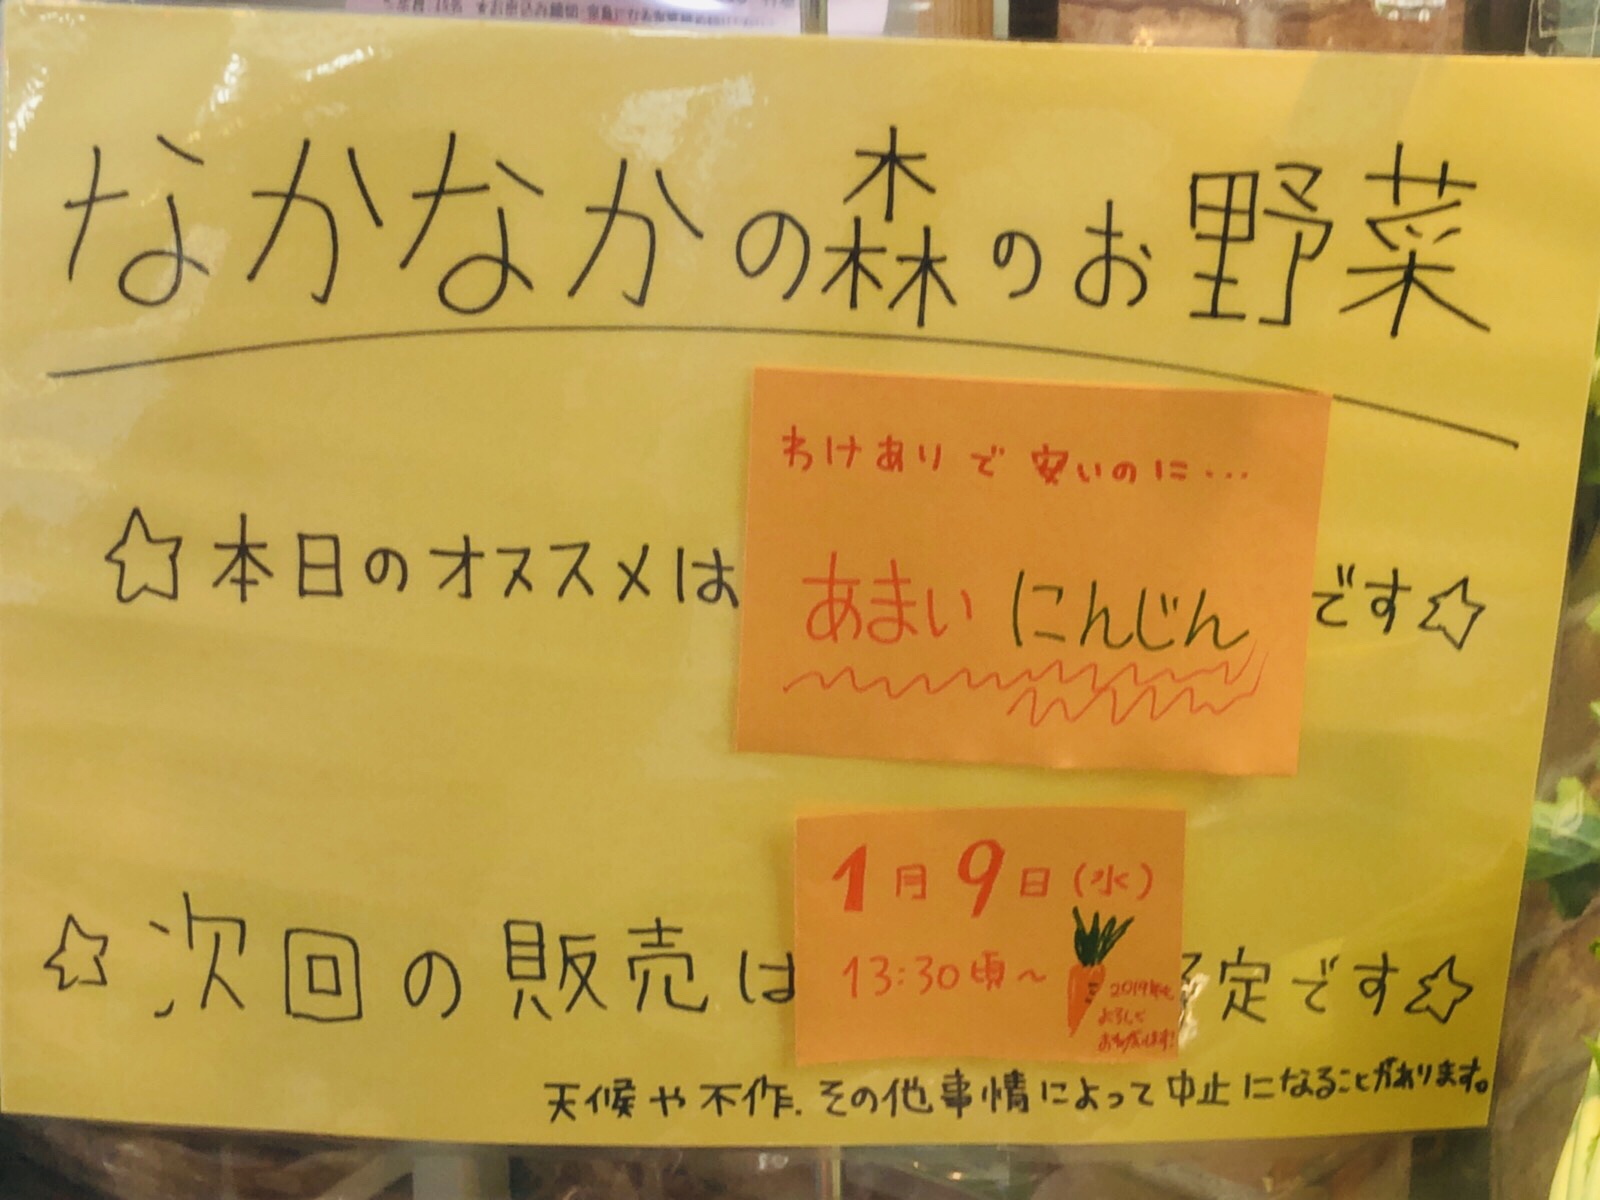 なかなかの森のお野菜
わけありで安いのに…
☆本日のオススメは あまいにんじん です☆
1月9日(水)
☆次回の販売は 13:30頃~ 予定です☆
2019年も
よろしく
おねがいします!
天候や不作、その他事情によって中止になることがあります。